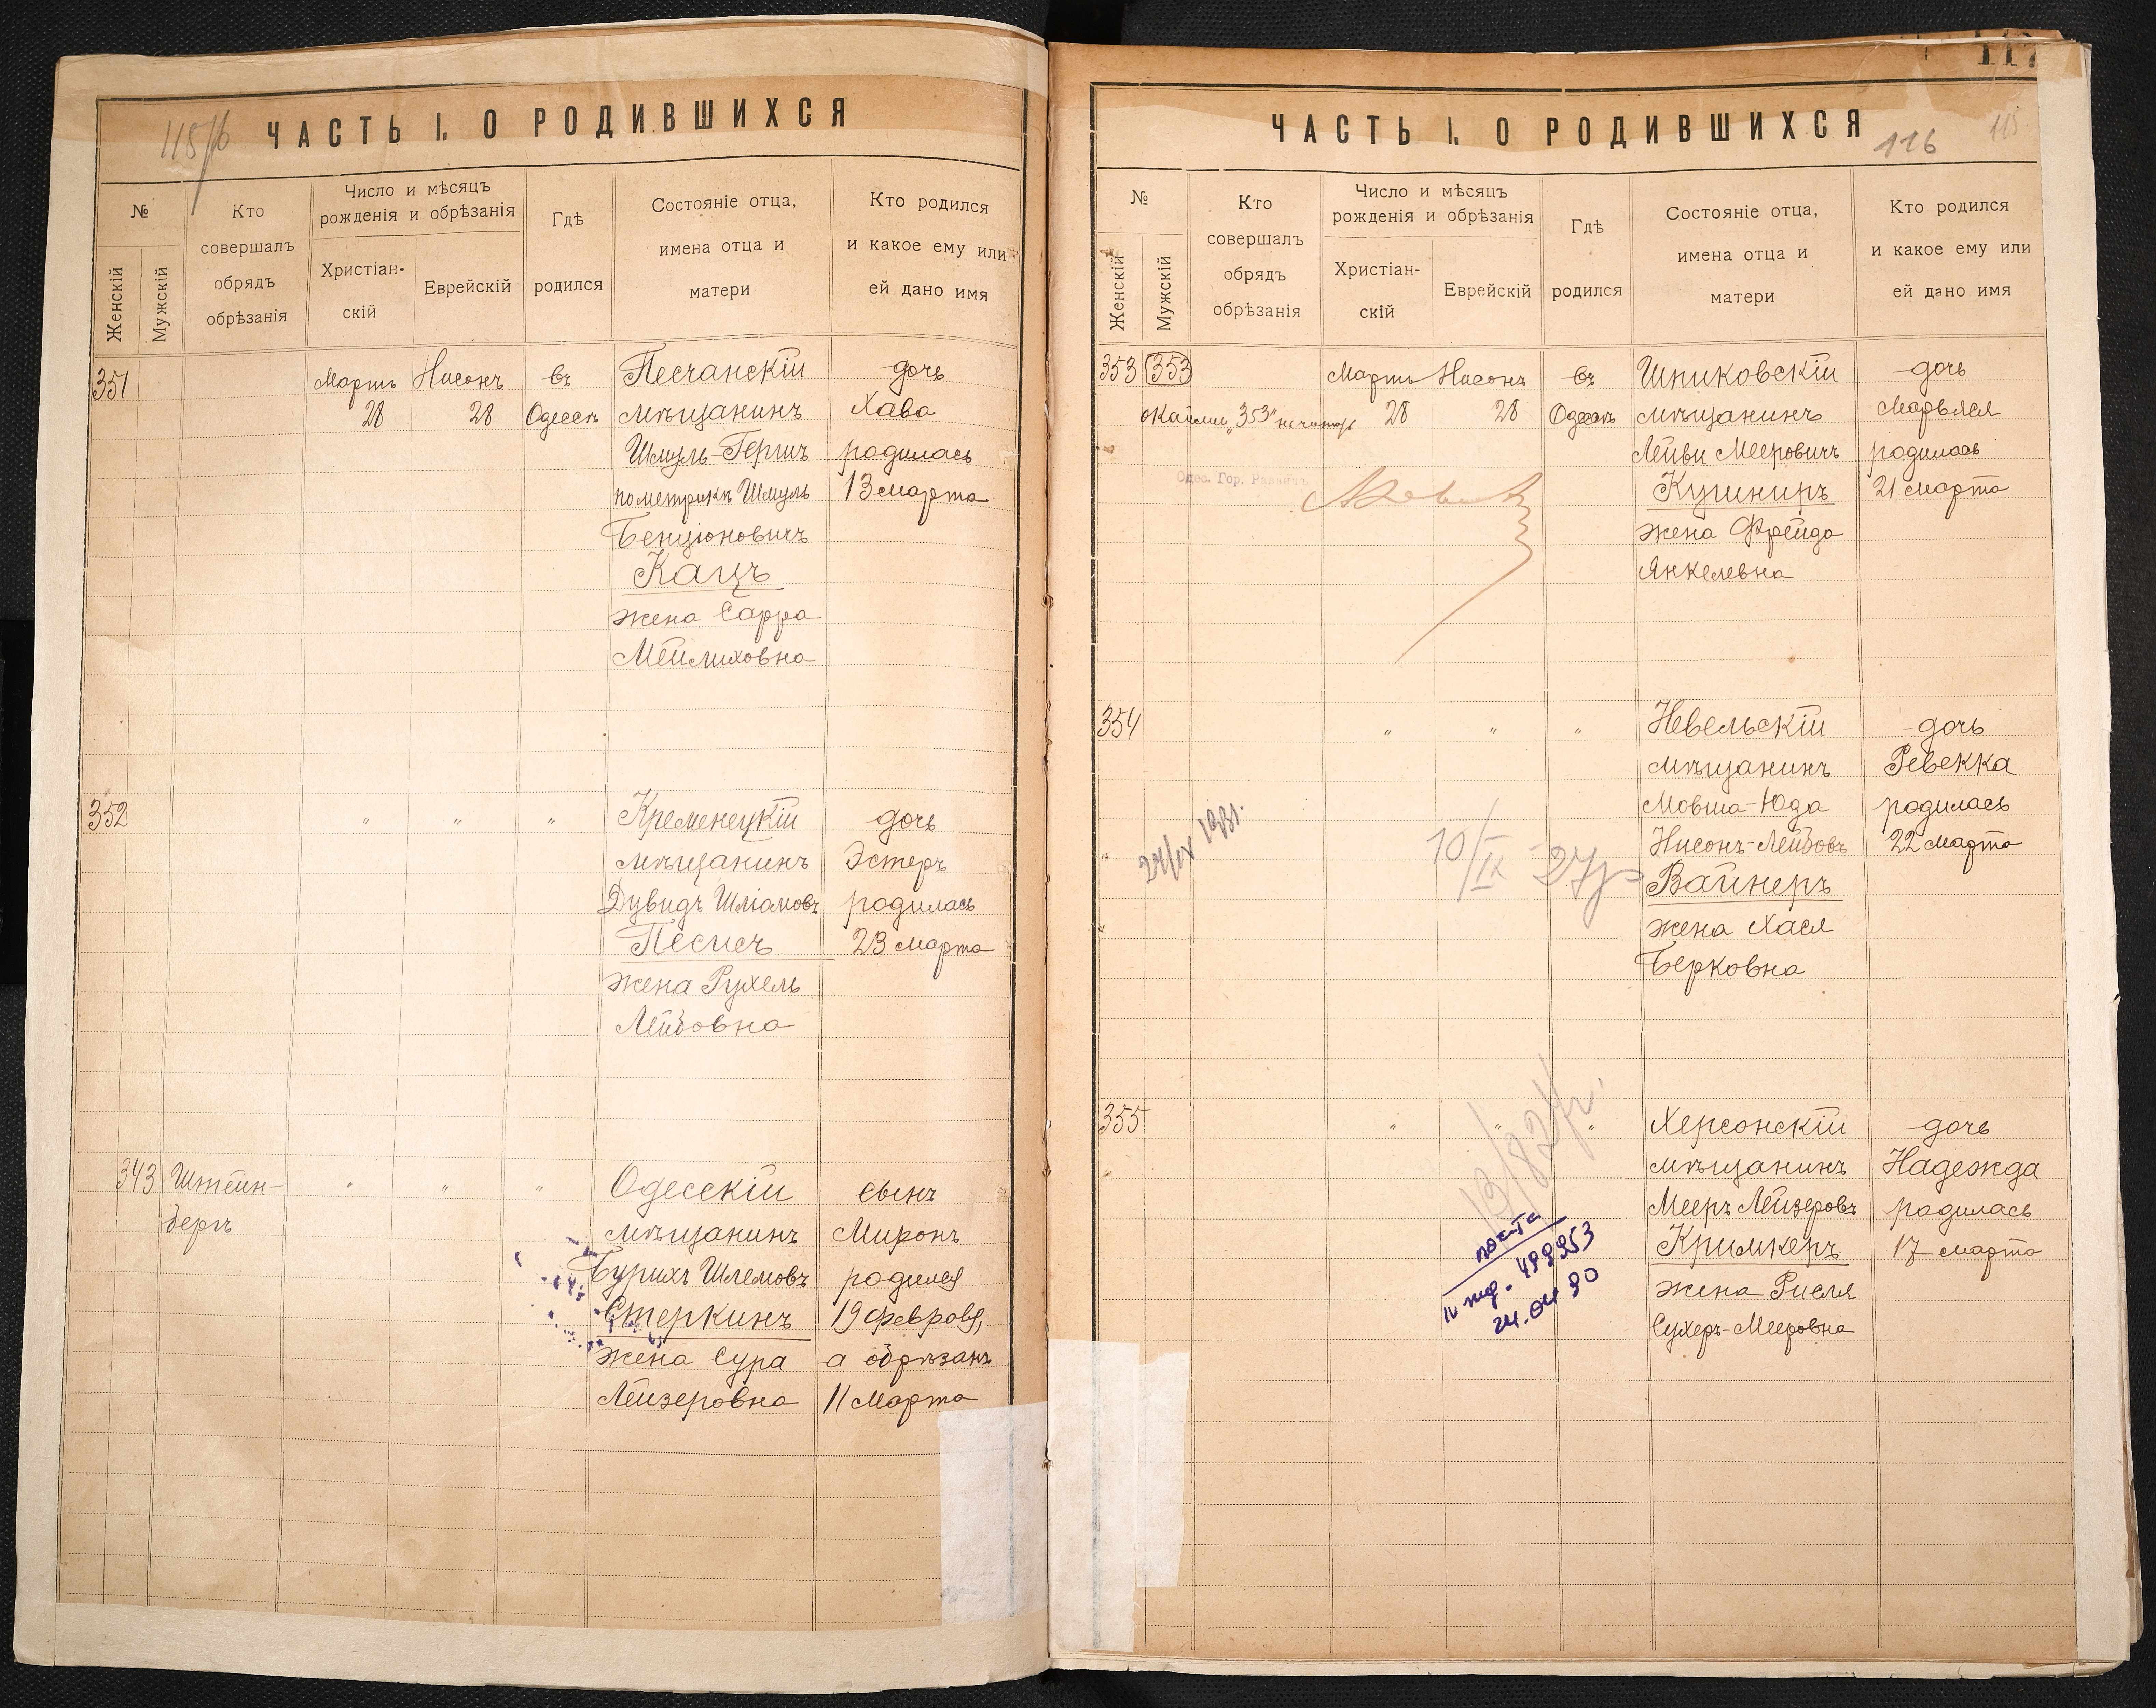 115
ЧАСТЬ I. О РОДИВШИХСЯ
№
Женскій
Мужскій
Кто
совершалъ
обрядъ
обрѣзанія
Число и мѣсяцъ
рожденія и обрѣзанія
Христіан-
скій
Еврейскій
Гдѣ
родился
Состояніе отца,
имена отца и
матери
Кто родился
и какое ему или
ей дано имя
351 Мартъ Нисонъ въ Песчанскій дочь
28 28 Одессѣ мѣщанинъ Хава
Шмуль-Гершъ родилась
по метрикѣ Шмуль 13 марта
Бенціоновичъ
Кацъ
жена Сарра
Мейлиховна
352 " " " Кременецкій дочь
мѣщанинъ Эстеръ
Дувидъ Шліомовъ родилась
Песисъ 23 марта
жена Рухель
Лейбовна
343 Штейн- " " " Одесскій сынъ
бергъ мѣщанинъ Миронъ
Бурихъ Шлемовъ родился
Стеркинъ 19 февраля,
жена Сура а обрѣзанъ
Лейзеровна 11 Марта
117
ЧАСТЬ I. О РОДИВШИХСЯ
116 115
№
Женскій
Мужскій
Кто
совершалъ
обрядъ
обрѣзанія
Число и мѣсяцъ
рожденія и обрѣзанія
Христіан-
скій
Еврейскій
Гдѣ
родился
Состояніе отца,
имена отца и
матери
Кто родился
и какое ему или
ей дано имя
353 353 Мартъ Нисонъ въ Шпиковскій дочь
"353" не читать 28 28 Одессѣ мѣщанинъ Марьяся
Лейви Мееровичъ родилась
Одес. Гор. Раввинъ Кушниръ 21 марта
жена Фрейда
Янкелевна
354 " " " Невельскій дочь
мѣщанинъ Ревекка
Мовша-Юда родилась
24/IX 1931. 10/IX 27 Нисонъ-Лейбовъ 22 марта
Вайнеръ
жена Хася
Берковна
355 " " " Херсонскій дочь
мѣщанинъ Надежда
13/8 24г. Мееръ Лейзеровъ родилась
Кримкеръ 17 марта
499953
24.04 90
жена Рисля
Сухеръ-Мееровна